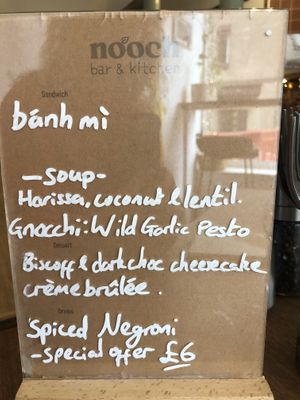 nooch
bar & kitchen
Sandwich
bánh mì
- Soup -
Harissa, coconut & lentil.
Gnocchi: Wild Garlic Pesto
Dessert
Biscoff & dark choc cheesecake
crème brûlée.
Drinks
Spiced Negroni
- special offer £6